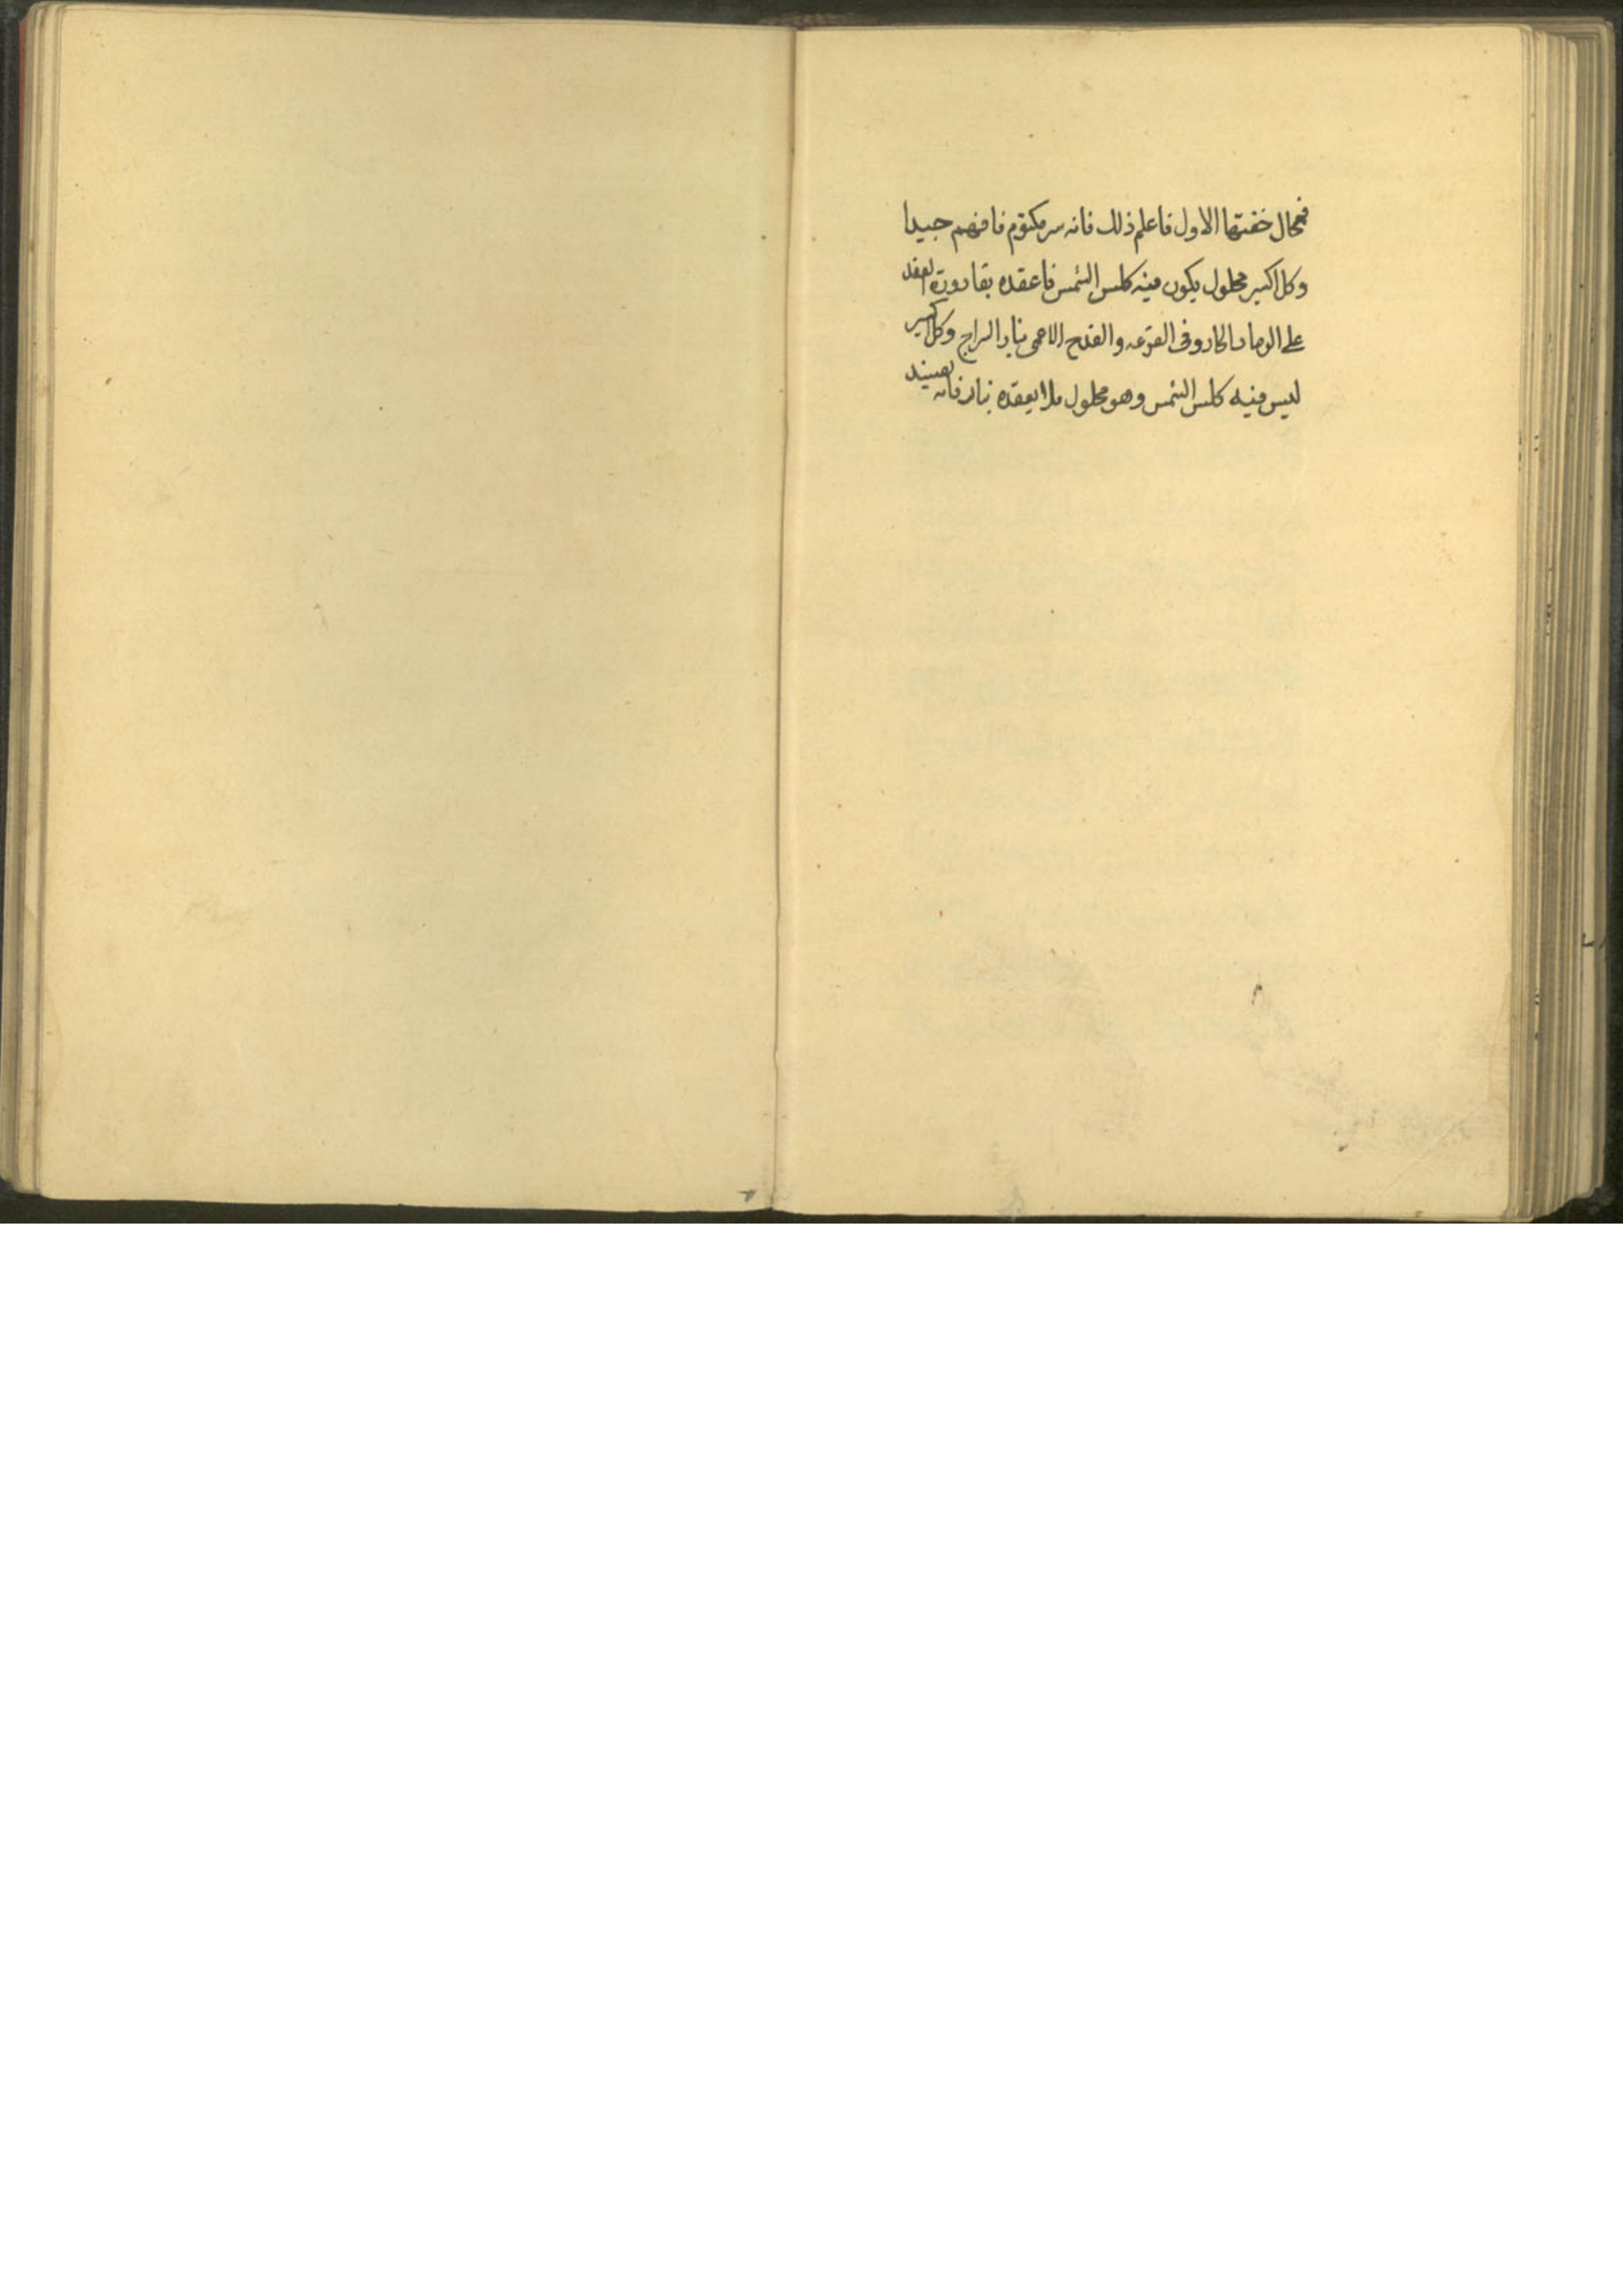 فحال خفتها الاول فاعلم ذلك فانه سر مكتوم فافهم جيدا
وكل اكسير محلول يكون فيه كلس الشمس فاعقده بقارورة العقد
على الرماد الحار وفى القرعه والقدح الاعمى بنار السراج وكل اكسير
ليس فيه كلس الشمس وهو محلول فلا يعقده بنار فانه يفسد